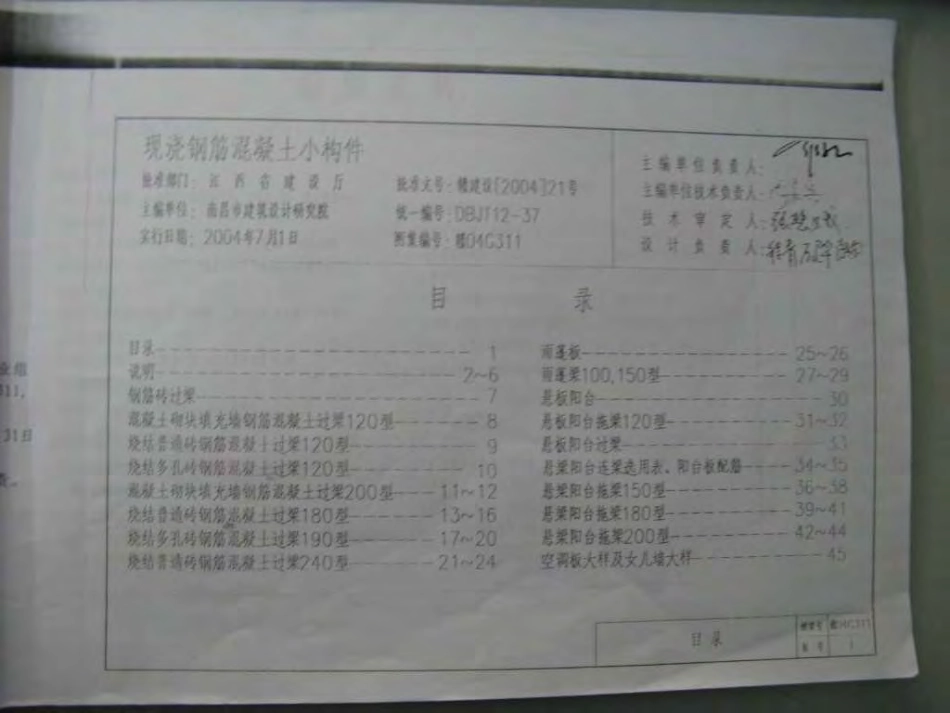 现浇钢筋混凝土小构件
批准部门：江西省建设厅 批准文号：赣建设[2004]21号
主编单位：南昌市建筑设计研究院 统一编号：DBJT12-37
实行日期：2004年7月1日 图集编号：赣04G311
主编单位负责人：
主编单位技术负责人：
技术审定人：
设计负责人：
目 录
目录 1
说明 2~6
钢筋砖过梁 7
混凝土砌块填充墙钢筋混凝土过梁120型 8
烧结普通砖钢筋混凝土过梁120型 9
烧结多孔砖钢筋混凝土过梁120型 10
混凝土砌块填充墙钢筋混凝土过梁200型 11~12
烧结普通砖钢筋混凝土过梁180型 13~16
烧结多孔砖钢筋混凝土过梁190型 17~20
烧结普通砖钢筋混凝土过梁240型 21~24
雨蓬板 25~26
雨蓬梁100,150型 27~29
悬板阳台 30
悬板阳台拖梁120型 31~32
悬板阳台过梁 33
悬梁阳台连梁选用表、阳台板配筋 34~35
悬梁阳台拖梁150型 36~38
悬梁阳台拖梁180型 39~41
悬梁阳台拖梁200型 42~44
空调板大样及女儿墙大样 45
目录
图集号 赣04G311
页号 1
311,
31日